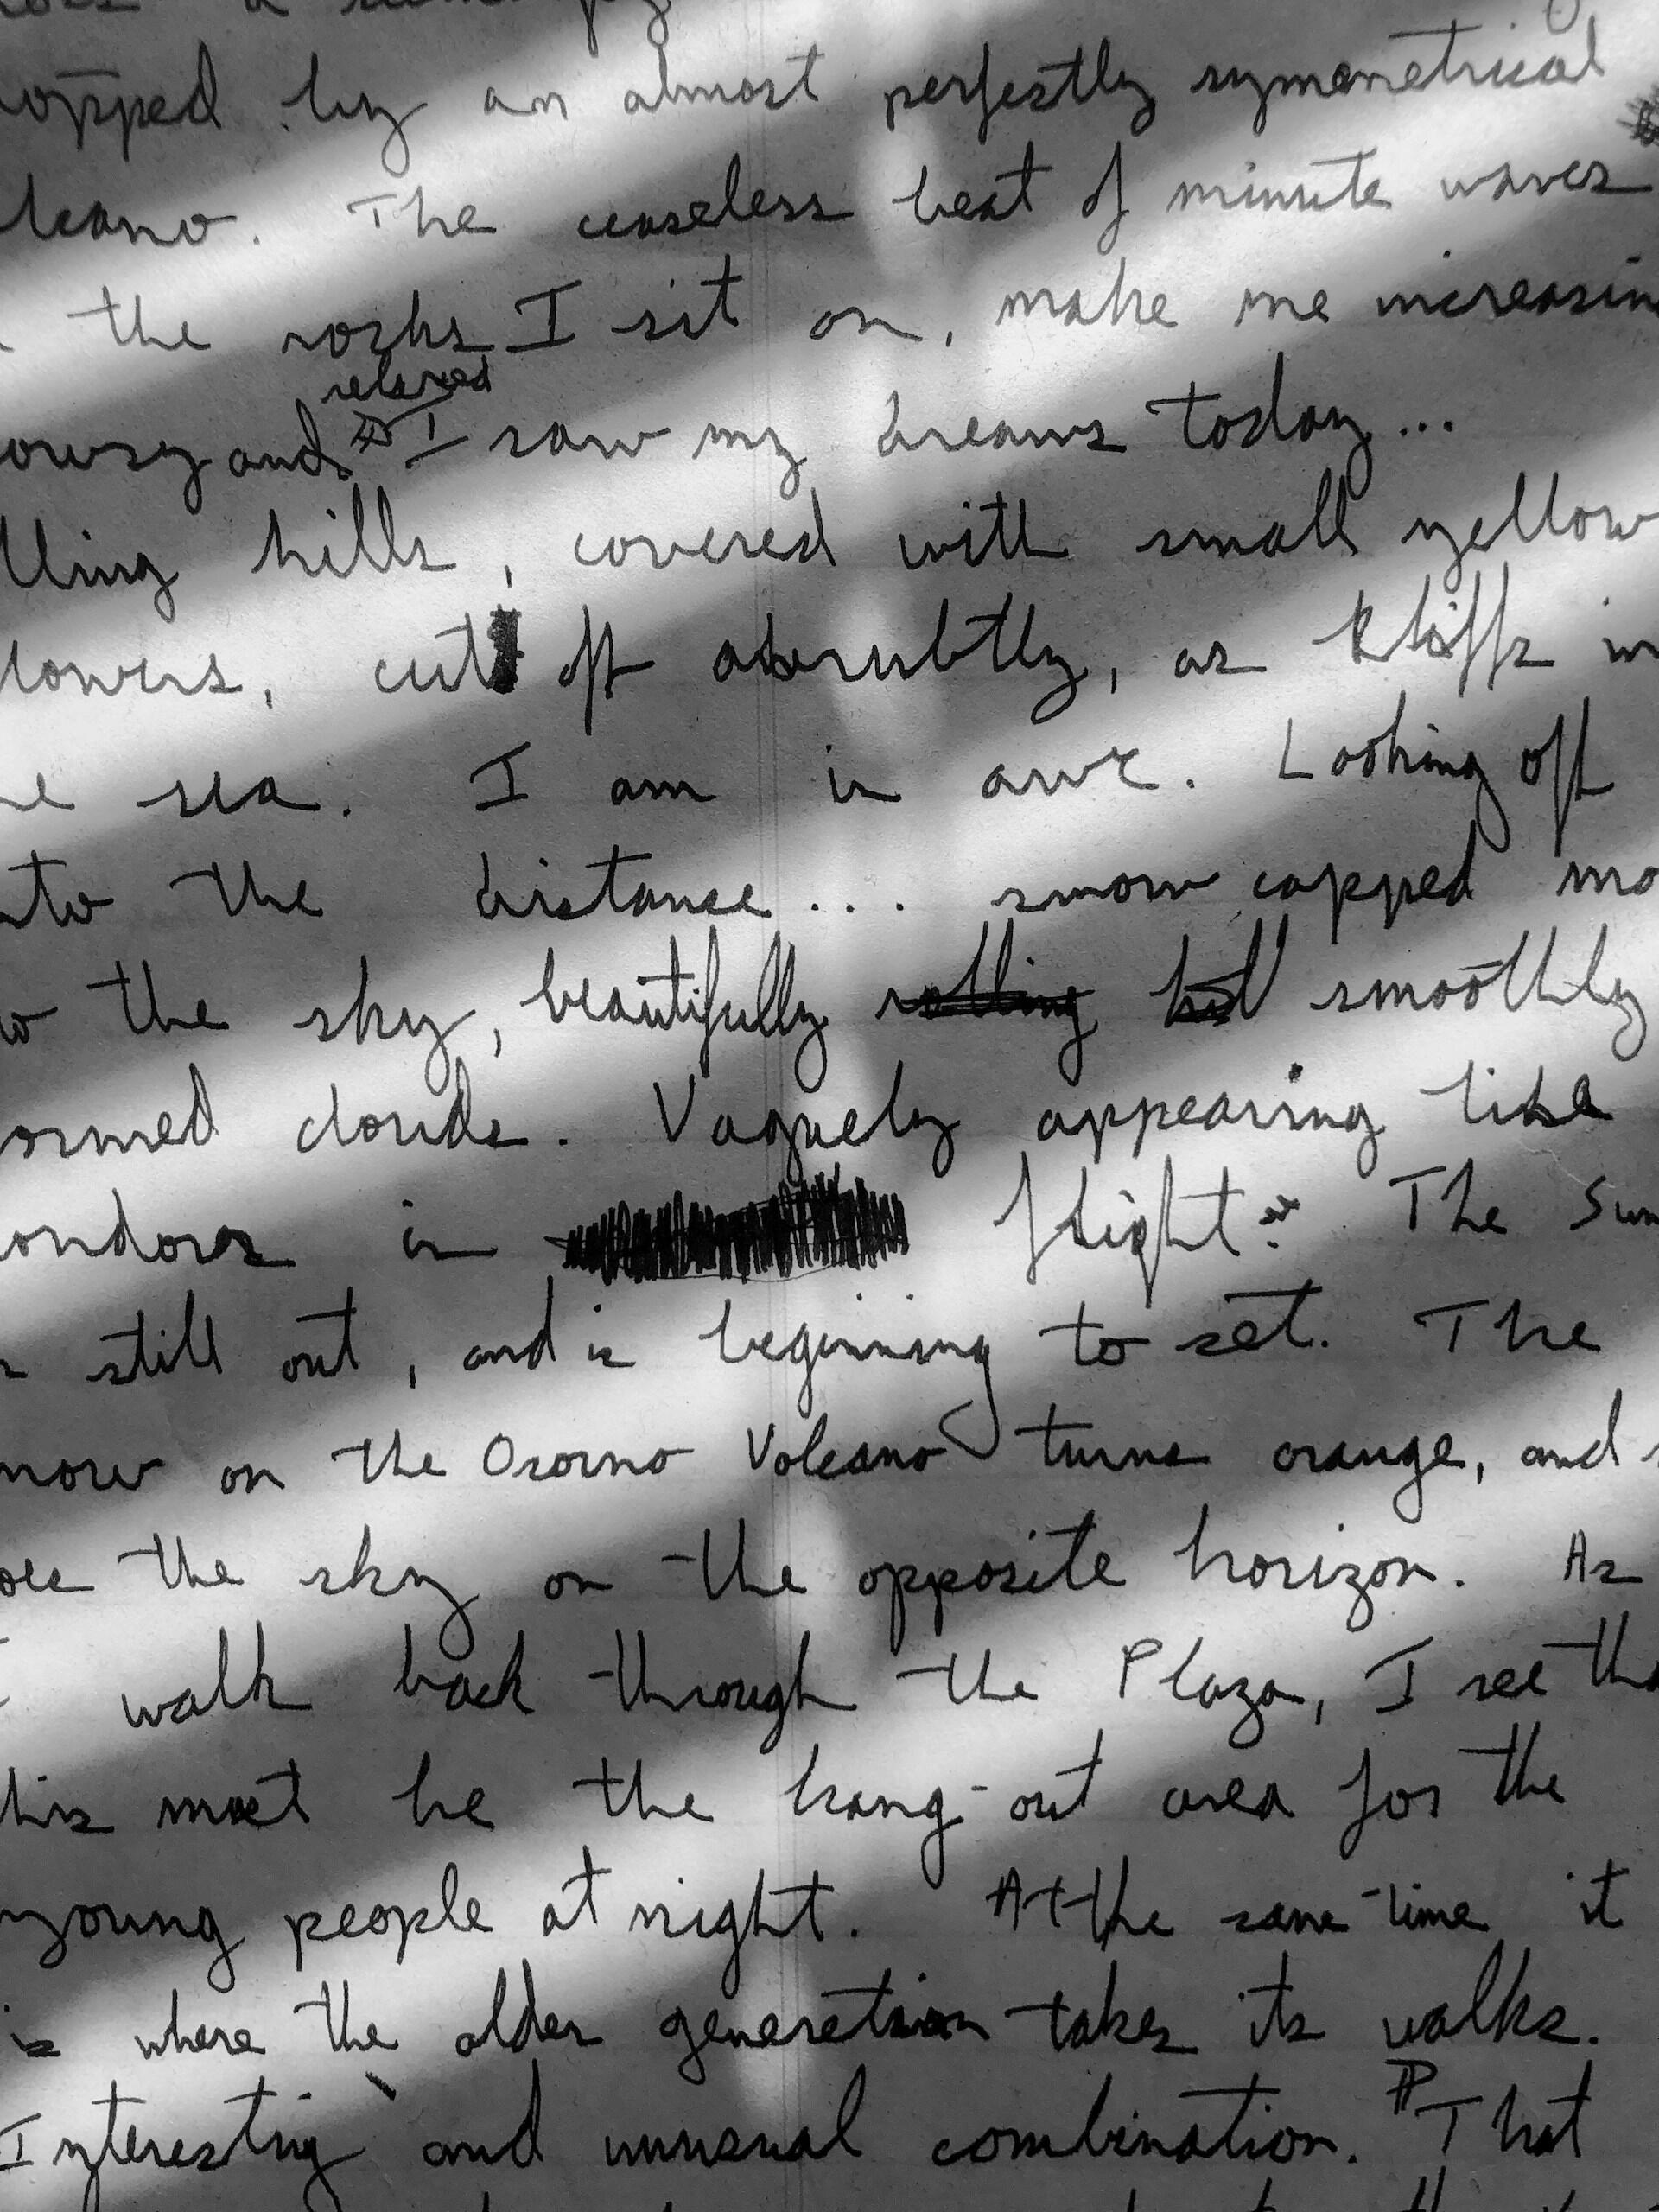 opped by an almost perfectly symmetrical
lcano. The ceaseless beat of minute waves
the rocks I sit on, make me increasin
relaxed
owsy and I saw my dreams today...
lling hills, covered with small yellow
lowers, cut off abrubtly, as kliffs in
he sea. I am in awe. Looking off
nto the distance... snow capped mo
o the sky, beautifully rolling hil smoothly
ormed clouds. Vaguely appearing like
ondores in flight. The Sun
still out, and is beginning to set. The
now on the Osorno Volcano turns orange, and
oes the sky on the opposite horizon. As
I walk back through the Plaza, I see tha
this must be the hang-out area for the
young people at night. At the same time it
is where the older generation takes its walks.
Interesting and unusual combination. That